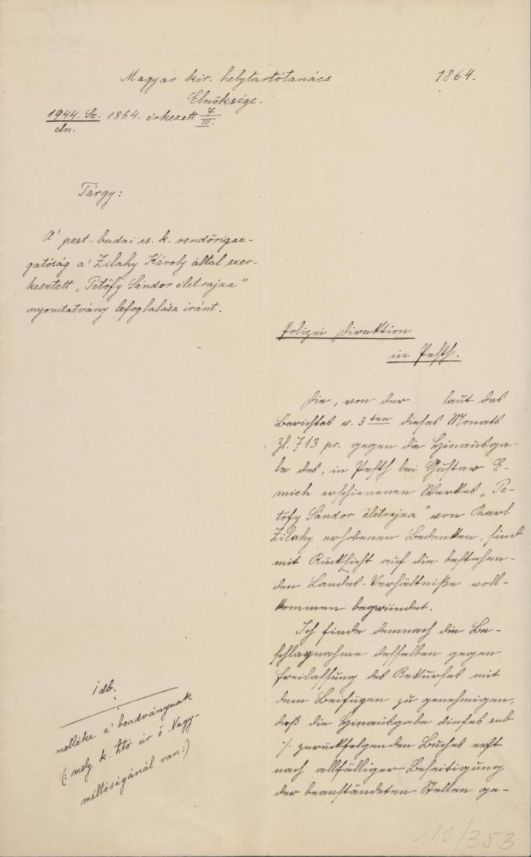 Magyar kir. helytartótanács 1864.
Elnöksége.
1944. Sz. 1864. érkezett 7/III.
eln.
Tárgy:
A' pest-budai cs. k. rendőrigaz-
gatóság a' Zilahy Károly által szer-
kesztett „Petőfy Sándor életrajza"
nyomtatvány lefoglalása iránt.
Polizei Direktion
in Pesth.
Die, von der laut des
Berichtes v. 3ten dieses Monats
Zl. 713 pr. gegen die Hinausga-
be des, in Pesth bei Gustav E-
mich erschienenen Werkes „Pe-
töfy Sándor életrajza" von Karl
Zilahy erhobenen Bedenken, sind
mit Rücksicht auf die bestehen-
den Landes-Verhältniße voll-
kommen begründet.
Ich finde demnach die Be-
schlagnahme desselben gegen
Freilassung des Rekurses mit
dem Beifügen zu genehmigen,
daß die Hinausgabe dieses sub
./. zurückfolgenden Buches erst
nach allfälliger Beseitigung
der beanständeten Stellen ge-
idb.
melléke a' beadványnak
(: mely k. ltó úr ő Nagy-
méltóságánál van :)
10/353